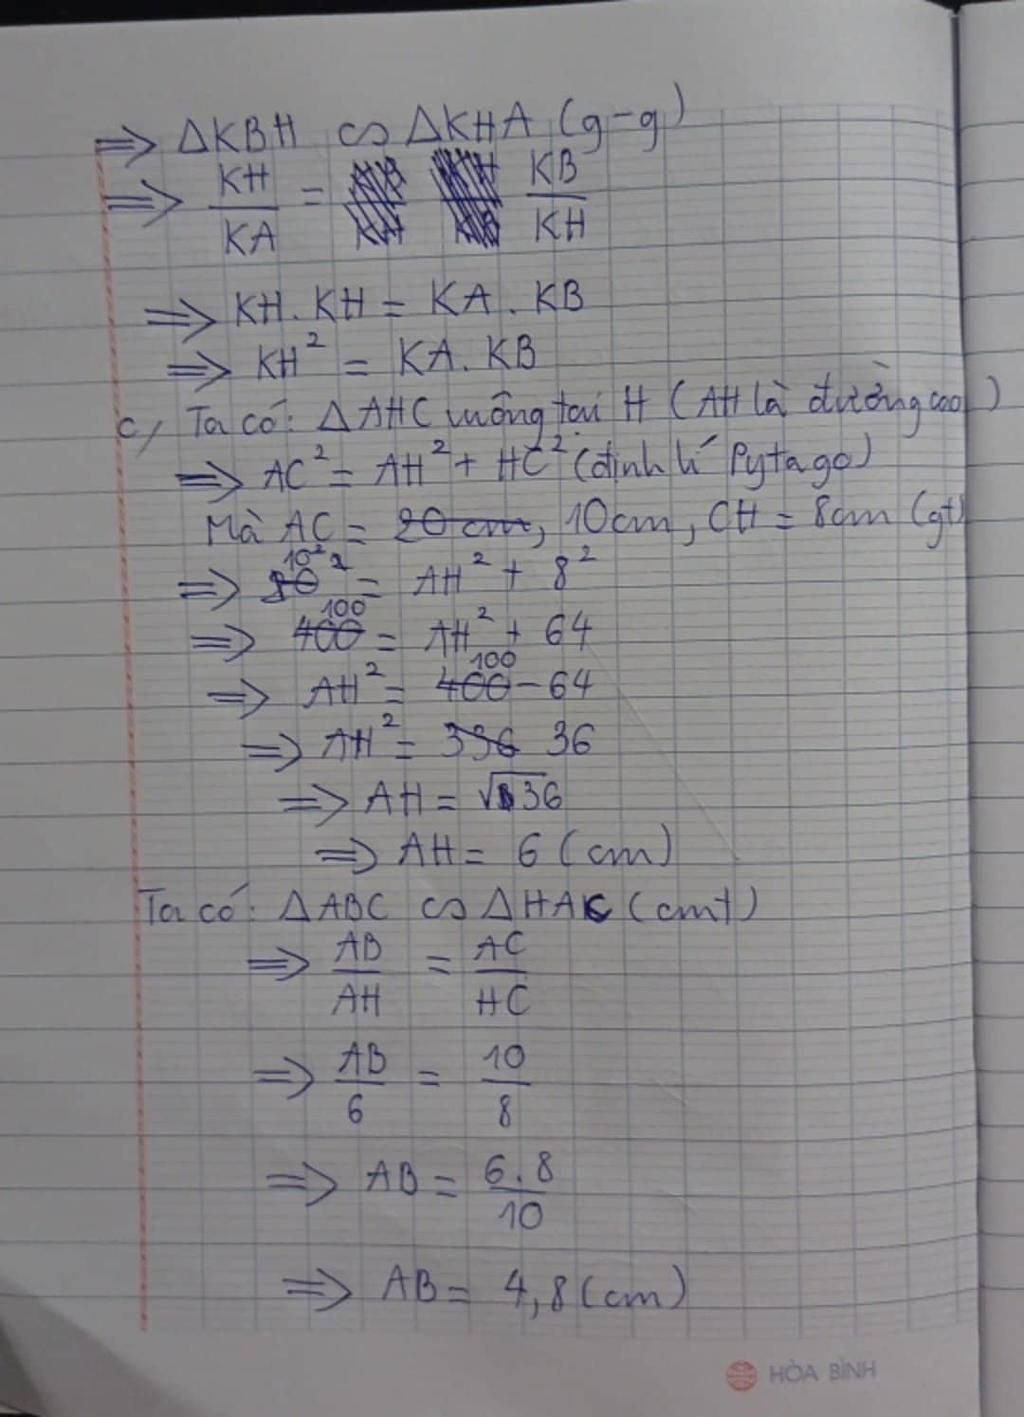 ⇒ ΔKBH ∽ ΔKHA (g-g)
⇒ KH/KA = KB/KH
⇒ KH.KH = KA.KB
⇒ KH² = KA.KB
c, Ta có: ΔAHC vuông tại H (AH là đường cao)
⇒ AC² = AH² + HC² (định lí Pytago)
Mà AC = 20cm, 10cm, CH = 8cm (gt)
⇒ 10² = AH² + 8²
⇒ 400 100 = AH² + 64
⇒ AH² = 400 100 - 64
⇒ AH² = 336 36
⇒ AH = √36
⇒ AH = 6 (cm)
Ta có: ΔABC ∽ ΔHAC (cmt)
⇒ AB/AH = AC/HC
⇒ AB/6 = 10/8
⇒ AB = 6.8/10
⇒ AB = 4,8 (cm)
HÒA BÌNH